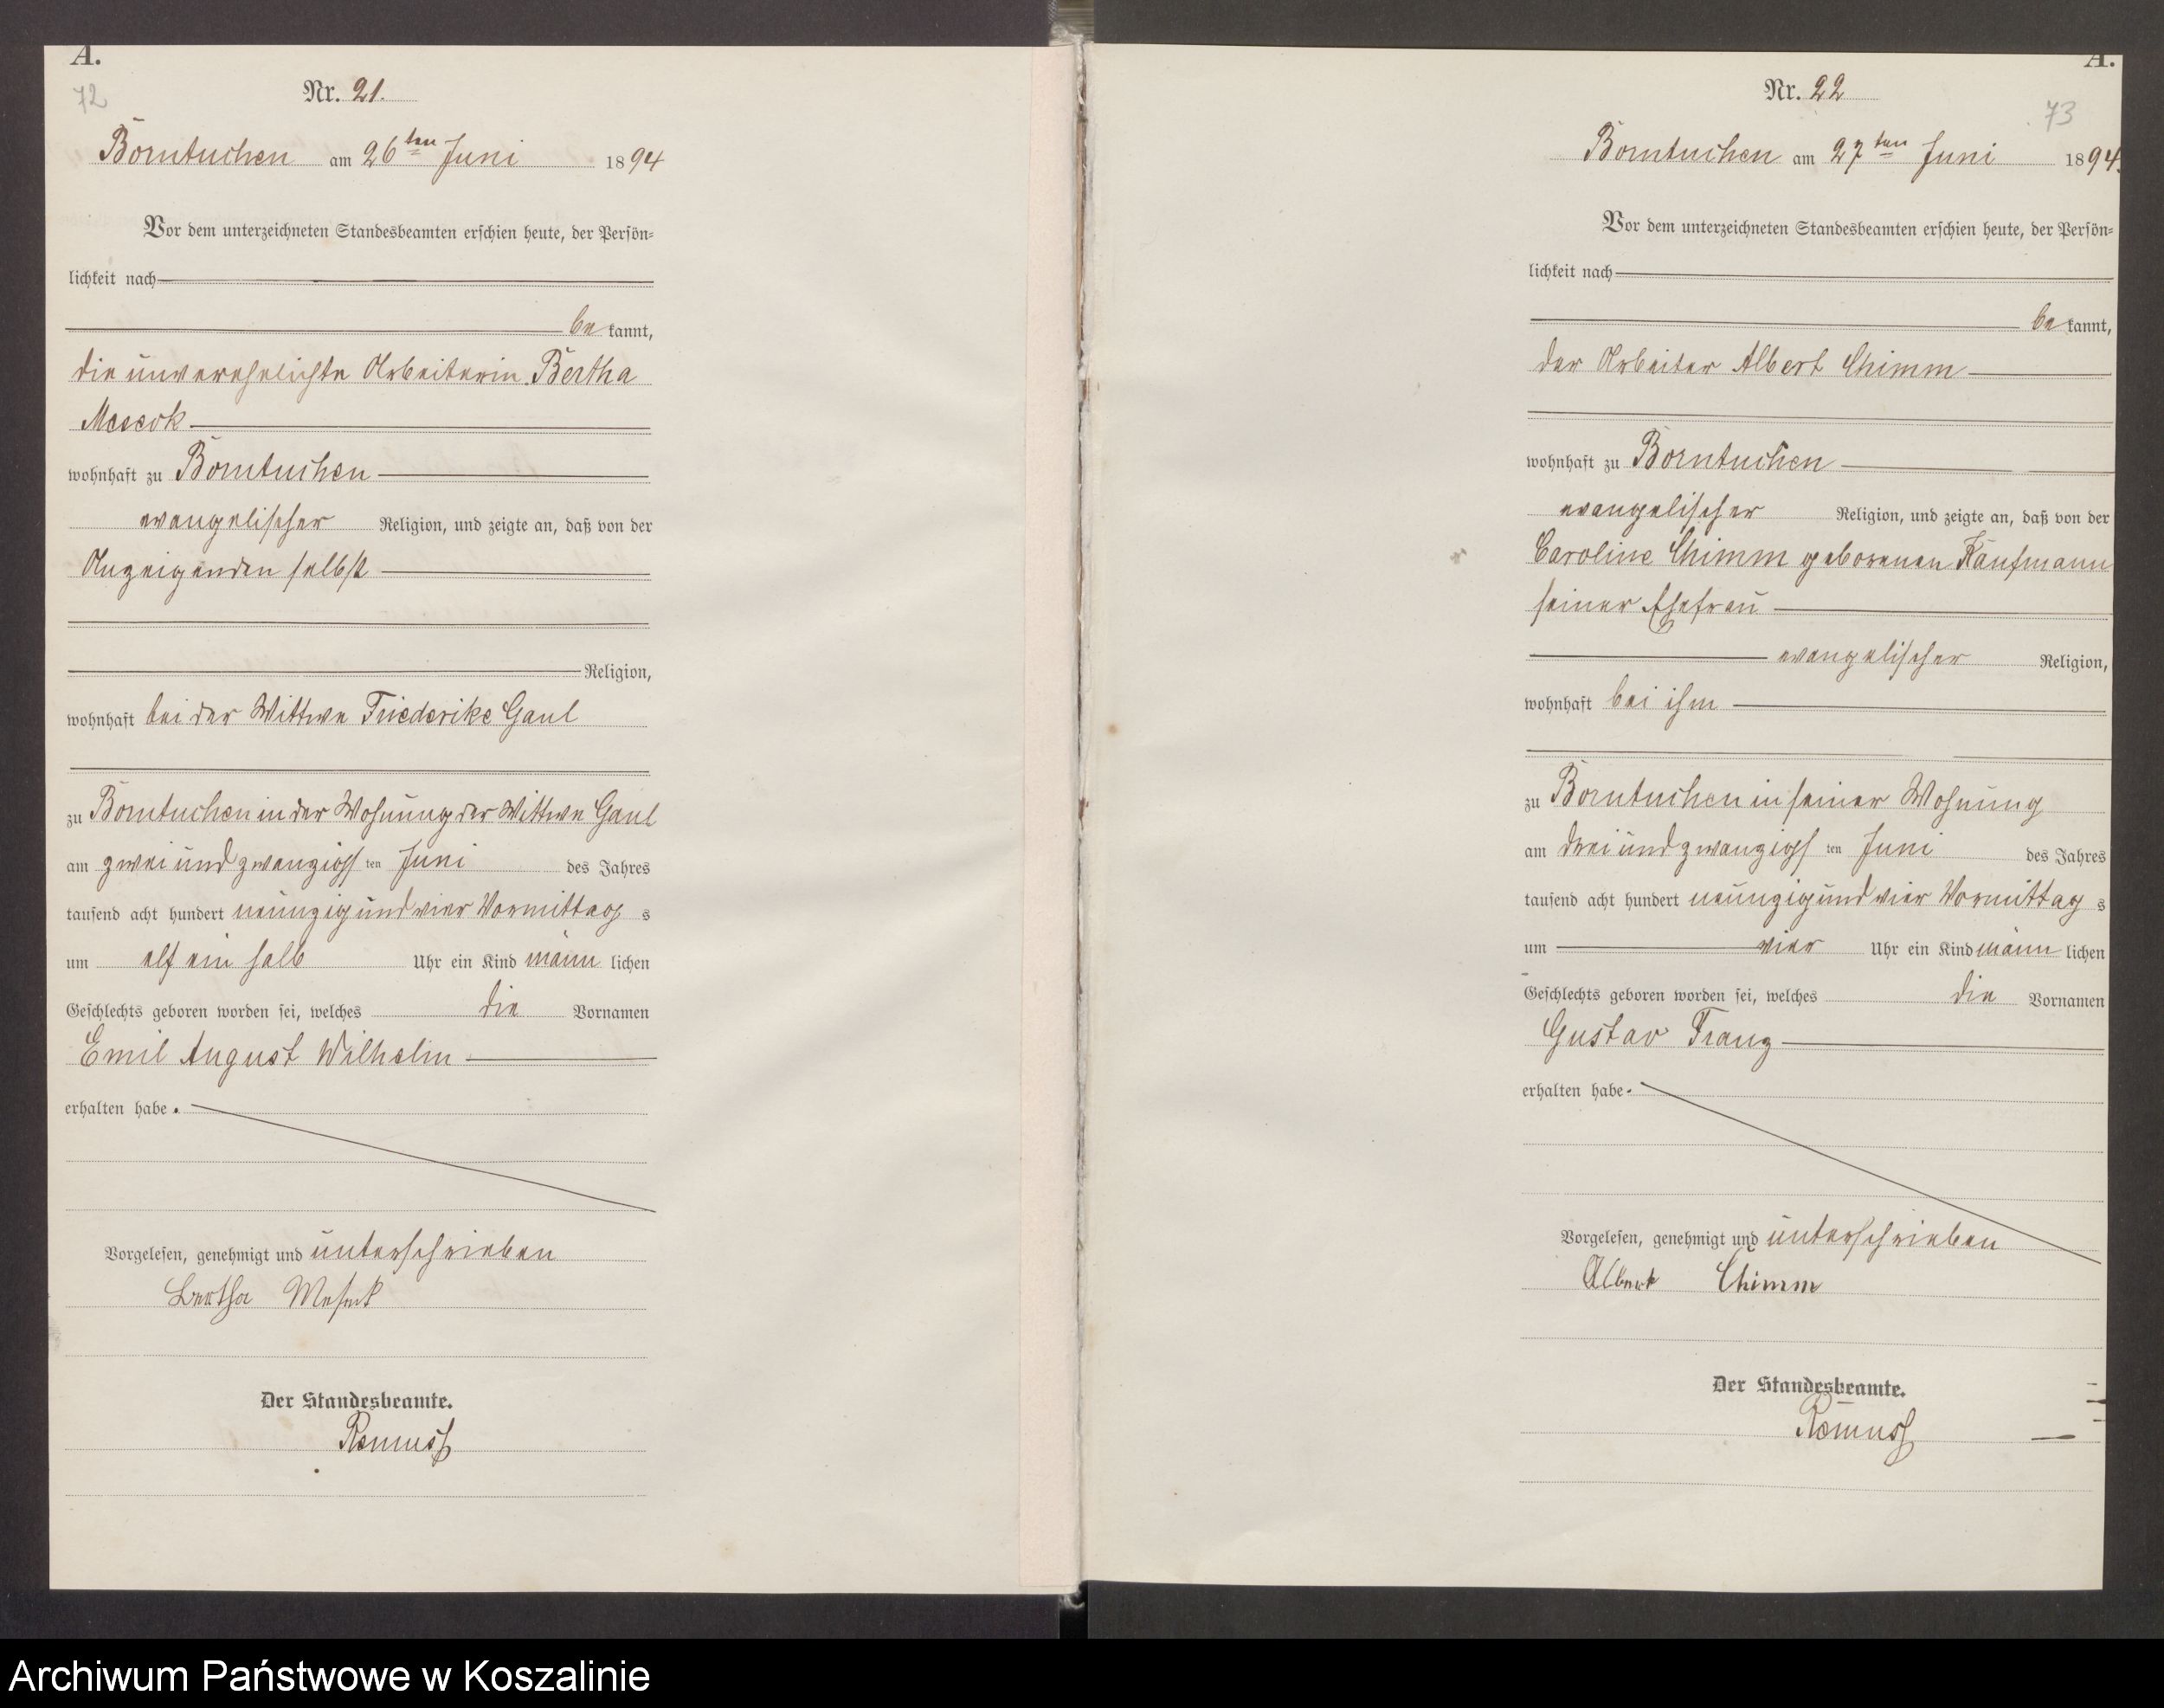 A.
72
Nr. 21.
Borntuchen am 26ten Juni 1894
Vor dem unterzeichneten Standesbeamten erschien heute, der Persön-
lichkeit nach
be kannt,
die unverehelichte Arbeiterin Bertha
Meseck
wohnhaft zu Borntuchen
evangelischer Religion, und zeigte an, daß von der
Anzeigenden selbst
Religion,
wohnhaft bei der Wittwe Friederike Gaul
zu Borntuchen in der Wohnung der Wittwe Gaul
am zwei und zwanzigsten Juni des Jahres
tausend acht hundert neunzig und vier Vormittag s
um elf ein halb Uhr ein Kind männ lichen
Geschlechts geboren worden sei, welches die Vornamen
Emil August Wilhelm
erhalten habe.
Vorgelesen, genehmigt und unterschrieben
Bertha Meseck
Der Standesbeamte.
Remuss
A.
Nr. 22
73
Borntuchen am 27ten Juni 1894.
Vor dem unterzeichneten Standesbeamten erschien heute, der Persön-
lichkeit nach
be kannt,
der Arbeiter Albert Chimm
wohnhaft zu Borntuchen
evangelischer Religion, und zeigte an, daß von der
Caroline Chimm geborenen Kaufmann
seiner Ehefrau
evangelischer Religion,
wohnhaft bei ihm
zu Borntuchen in seiner Wohnung
am drei und zwanzigsten Juni des Jahres
tausend acht hundert neunzig und vier Vormittag s
um vier Uhr ein Kind männ lichen
Geschlechts geboren worden sei, welches die Vornamen
Gustav Franz
erhalten habe.
Vorgelesen, genehmigt und unterschrieben
Albert Chimm
Der Standesbeamte.
Remuss
Archiwum Państwowe w Koszalinie